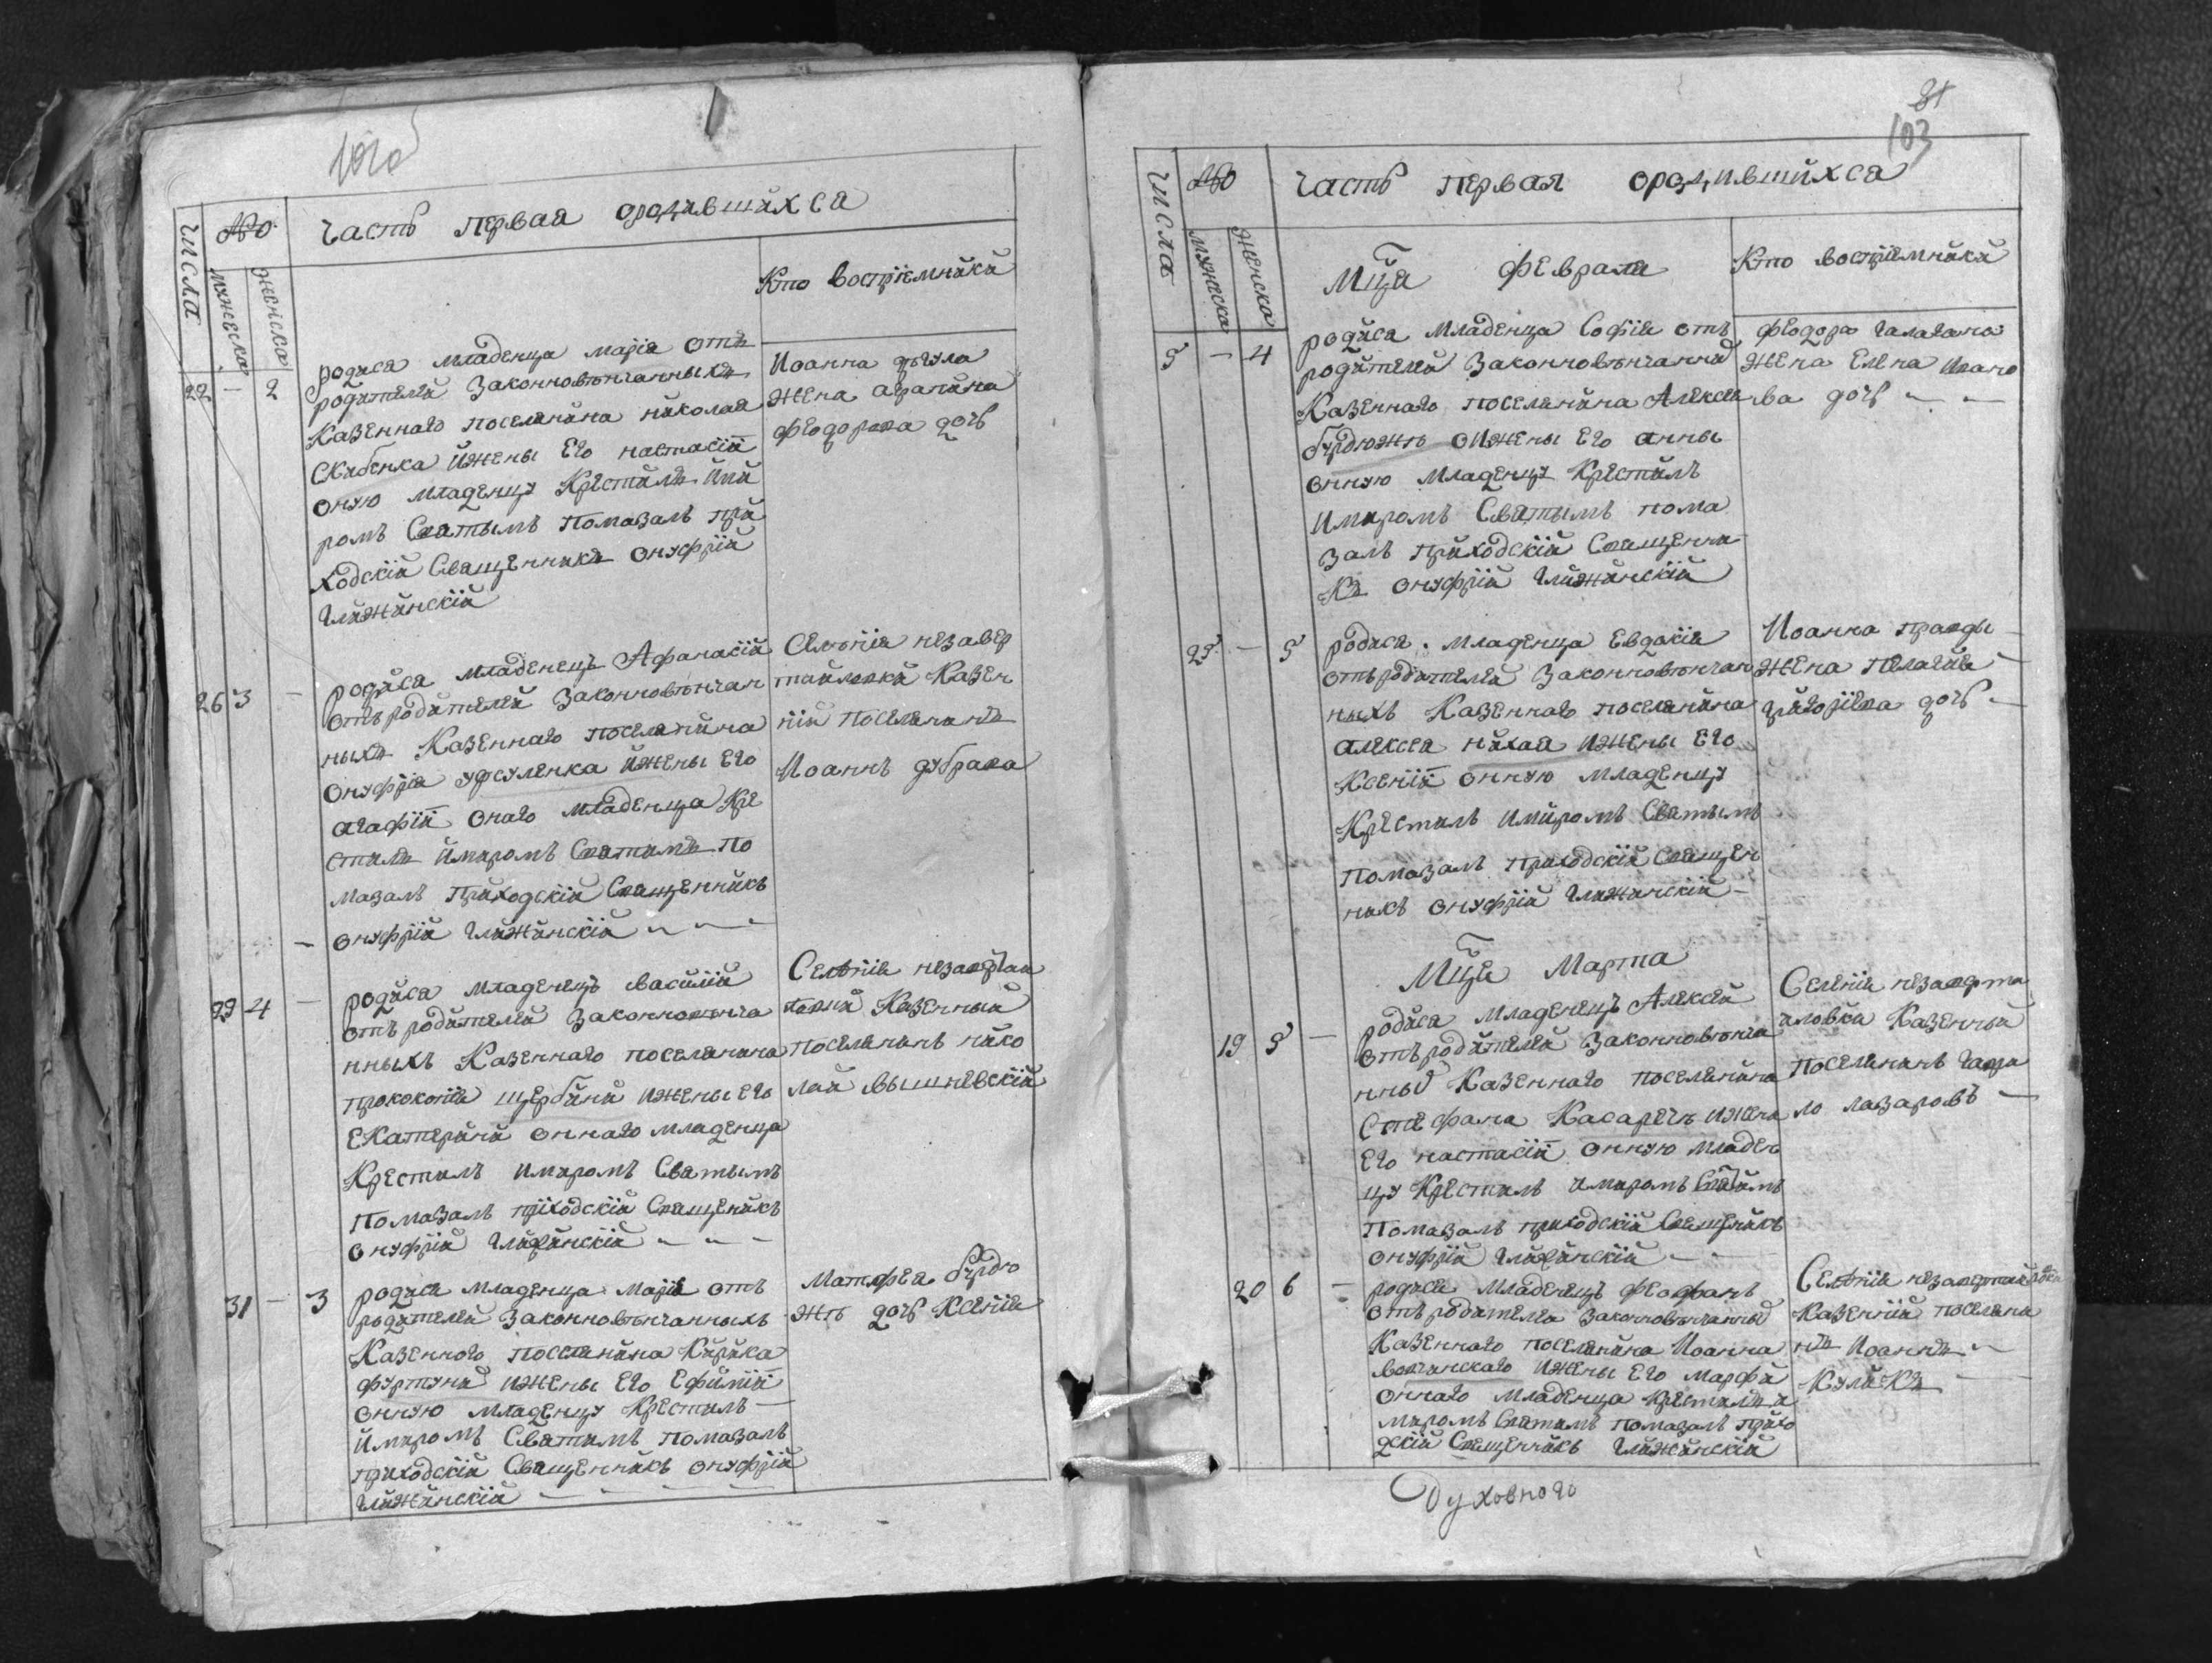 102об
Числа
№
Мужеска
Женска
Часть первая ородившихся
Кто восприемники
22 - 2
родися младенца марія отъ
родителей законновѣнчанныхъ
Казеннаго поселянина николая
Скибенка ижены Его настасіи
оную младенцу Крестилъ ими
ромъ Святымъ помазалъ при
ходскій Священникъ онуфрій
Глижинскій
Иоанна
жена агапина
феодорова дочь
26 3 -
родися младенецъ Афанасій
отъ родителей законновѣнчан
ныхъ Казеннаго поселянина
онуфрія урсуленка ижены Его
агафіи онаго младенца Кре
стилъ имиромъ Святимъ по
мазалъ приходскій Священникъ
онуфрій Глижинскій
Селенія незавер
тайловки Казен
ній поселянинъ
Иоаннъ дубрава
29 4 -
родися младенецъ василій
отъ родителей законновѣнча
нныхъ Казеннаго поселянина
прококопія щербини ижены Его
Екатерини оннаго младенца
Крестилъ имиромъ Святымъ
помазалъ пріходскій Священикъ
онуфрій Глижинскій
Селенія незавертаи
ловки Казенный
поселянинъ нико
лай вышневскій
31 - 3
родися младенца марія отъ
родителей законновѣнчанныхъ
Казенного поселянина Кирика
фуртуни ижены Его Ефиміи
онную младенцу Крестилъ
имиромъ Святимъ помазалъ
приходскій Священникъ онуфрій
Глижинскій
Матфея бурдю
жѣ дочь Ксенія
81
103
Числа
№
Мужеска
Женска
Часть первая ородившихся
Мца февраля
Кто восприемники
5 - 4
родися младенца Софія отъ
родителей законновѣнчанній
Казеннаго поселянина Алексея
бурдюжѣ ижены Его анны
онную младенцу Крестилъ
имиромъ Святымъ пома
залъ приходскій Священни
къ онуфрій Глижинскій
феодора галагана
жена Елена Ивано
ва дочь
25 - 5
родися младенца Евдакія
отъ родителей законновѣнчан
ныхъ Казеннаго поселянина
алексея михая ижены Его
Ксеніи онную младенцу
Крестилъ имиромъ Святымъ
помазалъ приходскій Священ
никъ онуфрій Глижинскій
Иоанна правды
жена пелагия
григоріева дочь
Мца Марта
19 5 -
родися младенецъ Алексей
отъ родителей законновѣнча
нный Казеннаго поселянина
Стефана Касаречъ ижени
Его настасіи онную младен
цу Крестилъ имиромъ Святимъ
помазалъ приходскій Священикъ
онуфрій Глижинскій
Селенія незаверта
иловки Казенный
поселянинъ гаври
ло лазаровъ
20 6 -
родися младенецъ феофанъ
отъ родителей законновѣнчанный
Казеннаго поселянина Иоанна
волчинскаго ижены Его марфи
оннаго младенца крестилъ и
миромъ Святимъ помазалъ прихо
дскій Священникъ Глижинскій
Селенія незавертайловки
Казенній поселяни
нъ Иоаннъ
Куликъ
Духовного